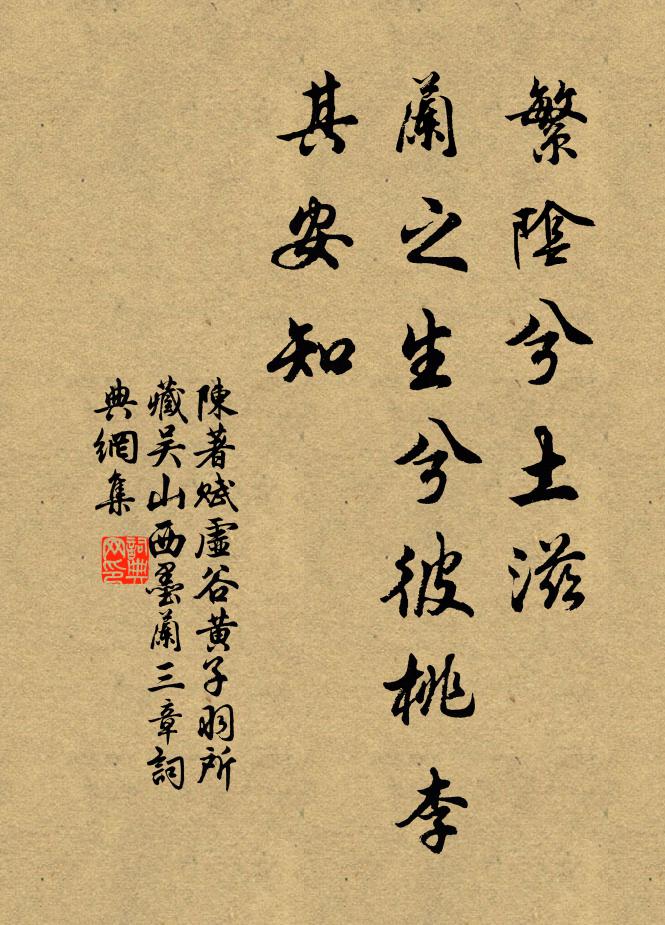 繁陰兮土滋
蘭之生兮彼桃李
其安知
陳著賦虛谷黄子羽所
藏吴山西墨蘭三章詞
典網集
詞典
网印